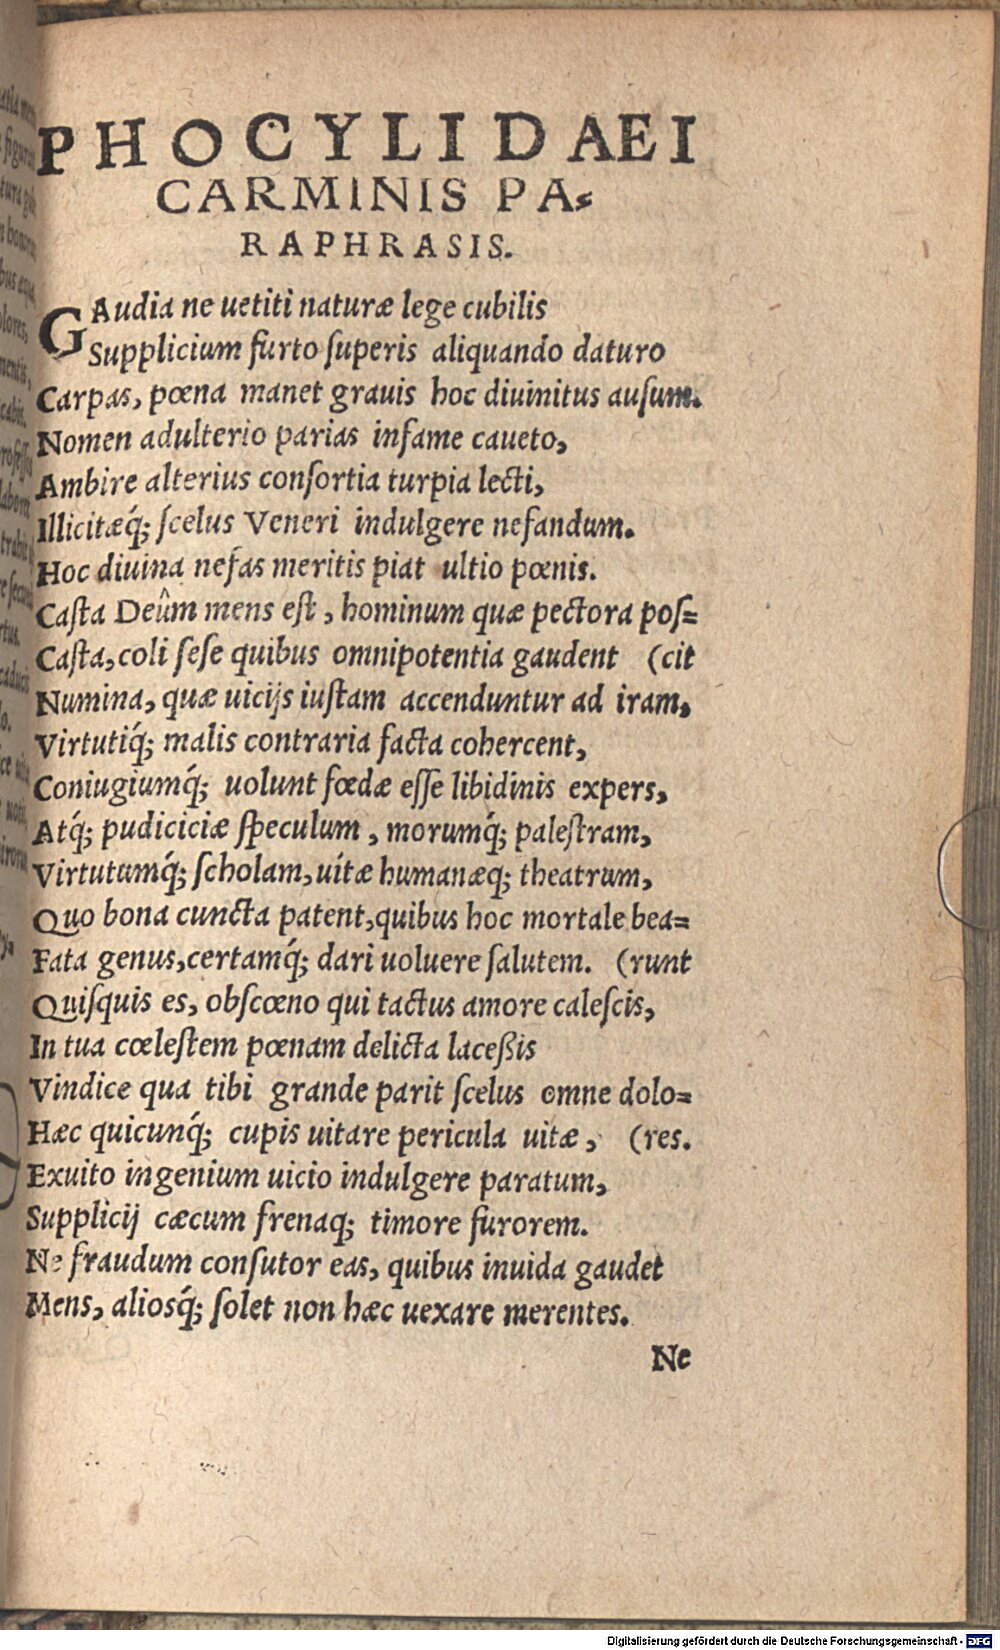 PHOCYLIDAEI
CARMINIS PA-
RAPHRASIS.
GAudia ne uetiti naturæ lege cubilis
Supplicium furto ſuperis aliquando daturo
Carpas, pœna manet grauis hoc diuinitus auſum.
Nomen adulterio parias infame caueto,
Ambire alterius conſortia turpia lecti,
Illicitæq́; ſcelus Veneri indulgere nefandum.
Hoc diuina nefas meritis piat ultio pœnis.
Caſta Deûm mens eſt, hominum quæ pectora poſ=
Caſta, coli ſeſe quibus omnipotentia gaudent (cit
Numina, quæ uicijs iuſtam accenduntur ad iram,
Virtutiq́; malis contraria facta cohercent,
Coniugiumq́; uolunt fœdæ eſſe libidinis expers,
Atq́; pudiciciæ ſpeculum, morumq́; paleſtram,
Virtutumq́; ſcholam, uitæ humanæq; theatrum,
Quo bona cuncta patent, quibus hoc mortale bea=
Fata genus, certamq́; dari uoluere ſalutem. (runt
Quiſquis es, obſcœno qui tactus amore caleſcis,
In tua cœleſtem pœnam delicta laceßis
Vindice qua tibi grande parit ſcelus omne dolo=
Hæc quicunq́; cupis uitare pericula uitæ, (res.
Exuito ingenium uicio indulgere paratum,
Supplicij cæcum frenaq; timore furorem.
Ne fraudum conſutor eas, quibus inuida gaudet
Mens, alioſq́; ſolet non hæc uexare merentes.
Ne
Digitalisierung gefördert durch die Deutsche Forschungsgemeinschaft - DFG